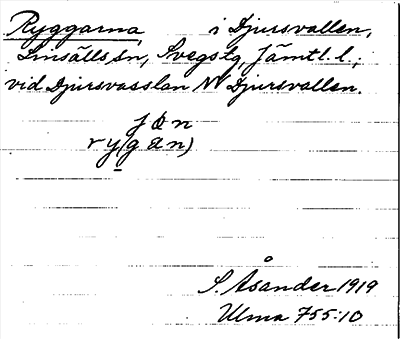 Ryggarna, i Djursvallen,
Linsälls sn, Svegs tg, Jämtl. l.;
vid Djursvasslan NV Djursvallen.
ry(gan)
S. Åsander 1919
Ulma 755:10